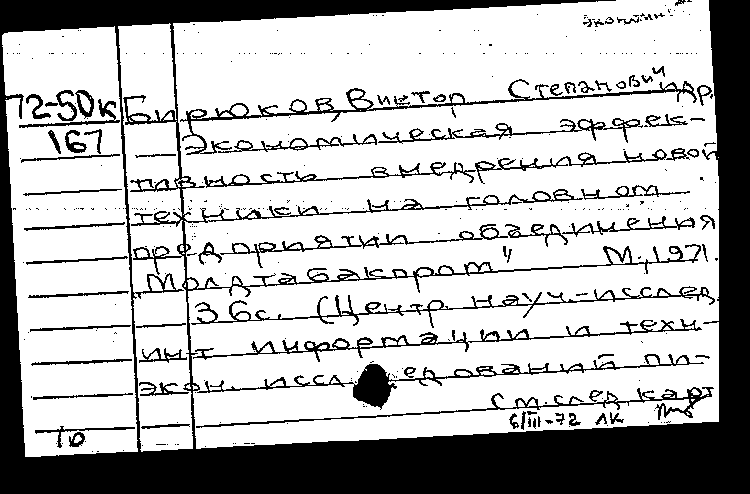 72-50к Бирюков, Виктор Степанович и др.
167 Экономическая эффек-
тивность внедрения новой
техники на головном
предприятии объединения
„Молдтабакпром". М., 1971.
36с. (Центр. науч.-исслед.
инт информации и техн.-
экон. исследований пи-
См.след карт
10 6/III-72 ЛК